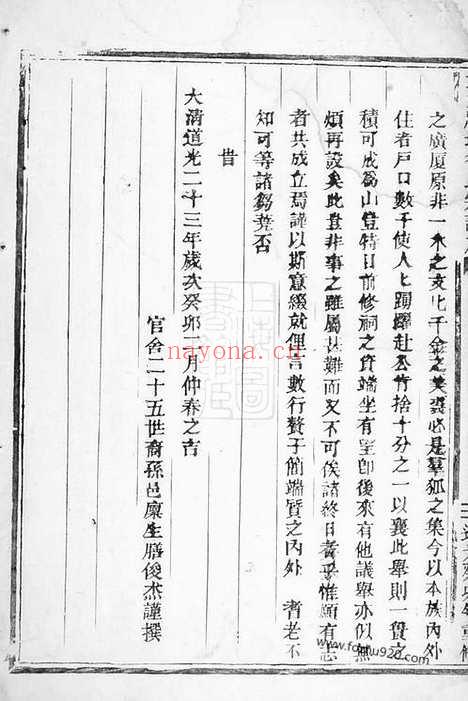 之廣厦原非一木之支化千金之美裘必是羣狐之集今以本族內外
住者戸口數千使人人踴躍赴公肯捨十分之一以襄此舉則一簣之
積可成爲山豈特目前修祠之資端坐有望即後來有他議舉亦似無
煩再設矣此豈非事之雖屬甚難而又不可俟諸終日者乎惟願有志
者共成立焉謹以斯意綴就俚言數行贅于簡端質之內外 耆老不
知可等諸芻蕘否
昔
大清道光二十三年歲次癸卯二月仲春之吉
官舍二十五世裔孫邑廩生膳俊杰謹撰
nayona.cn
www.fozhu920.com